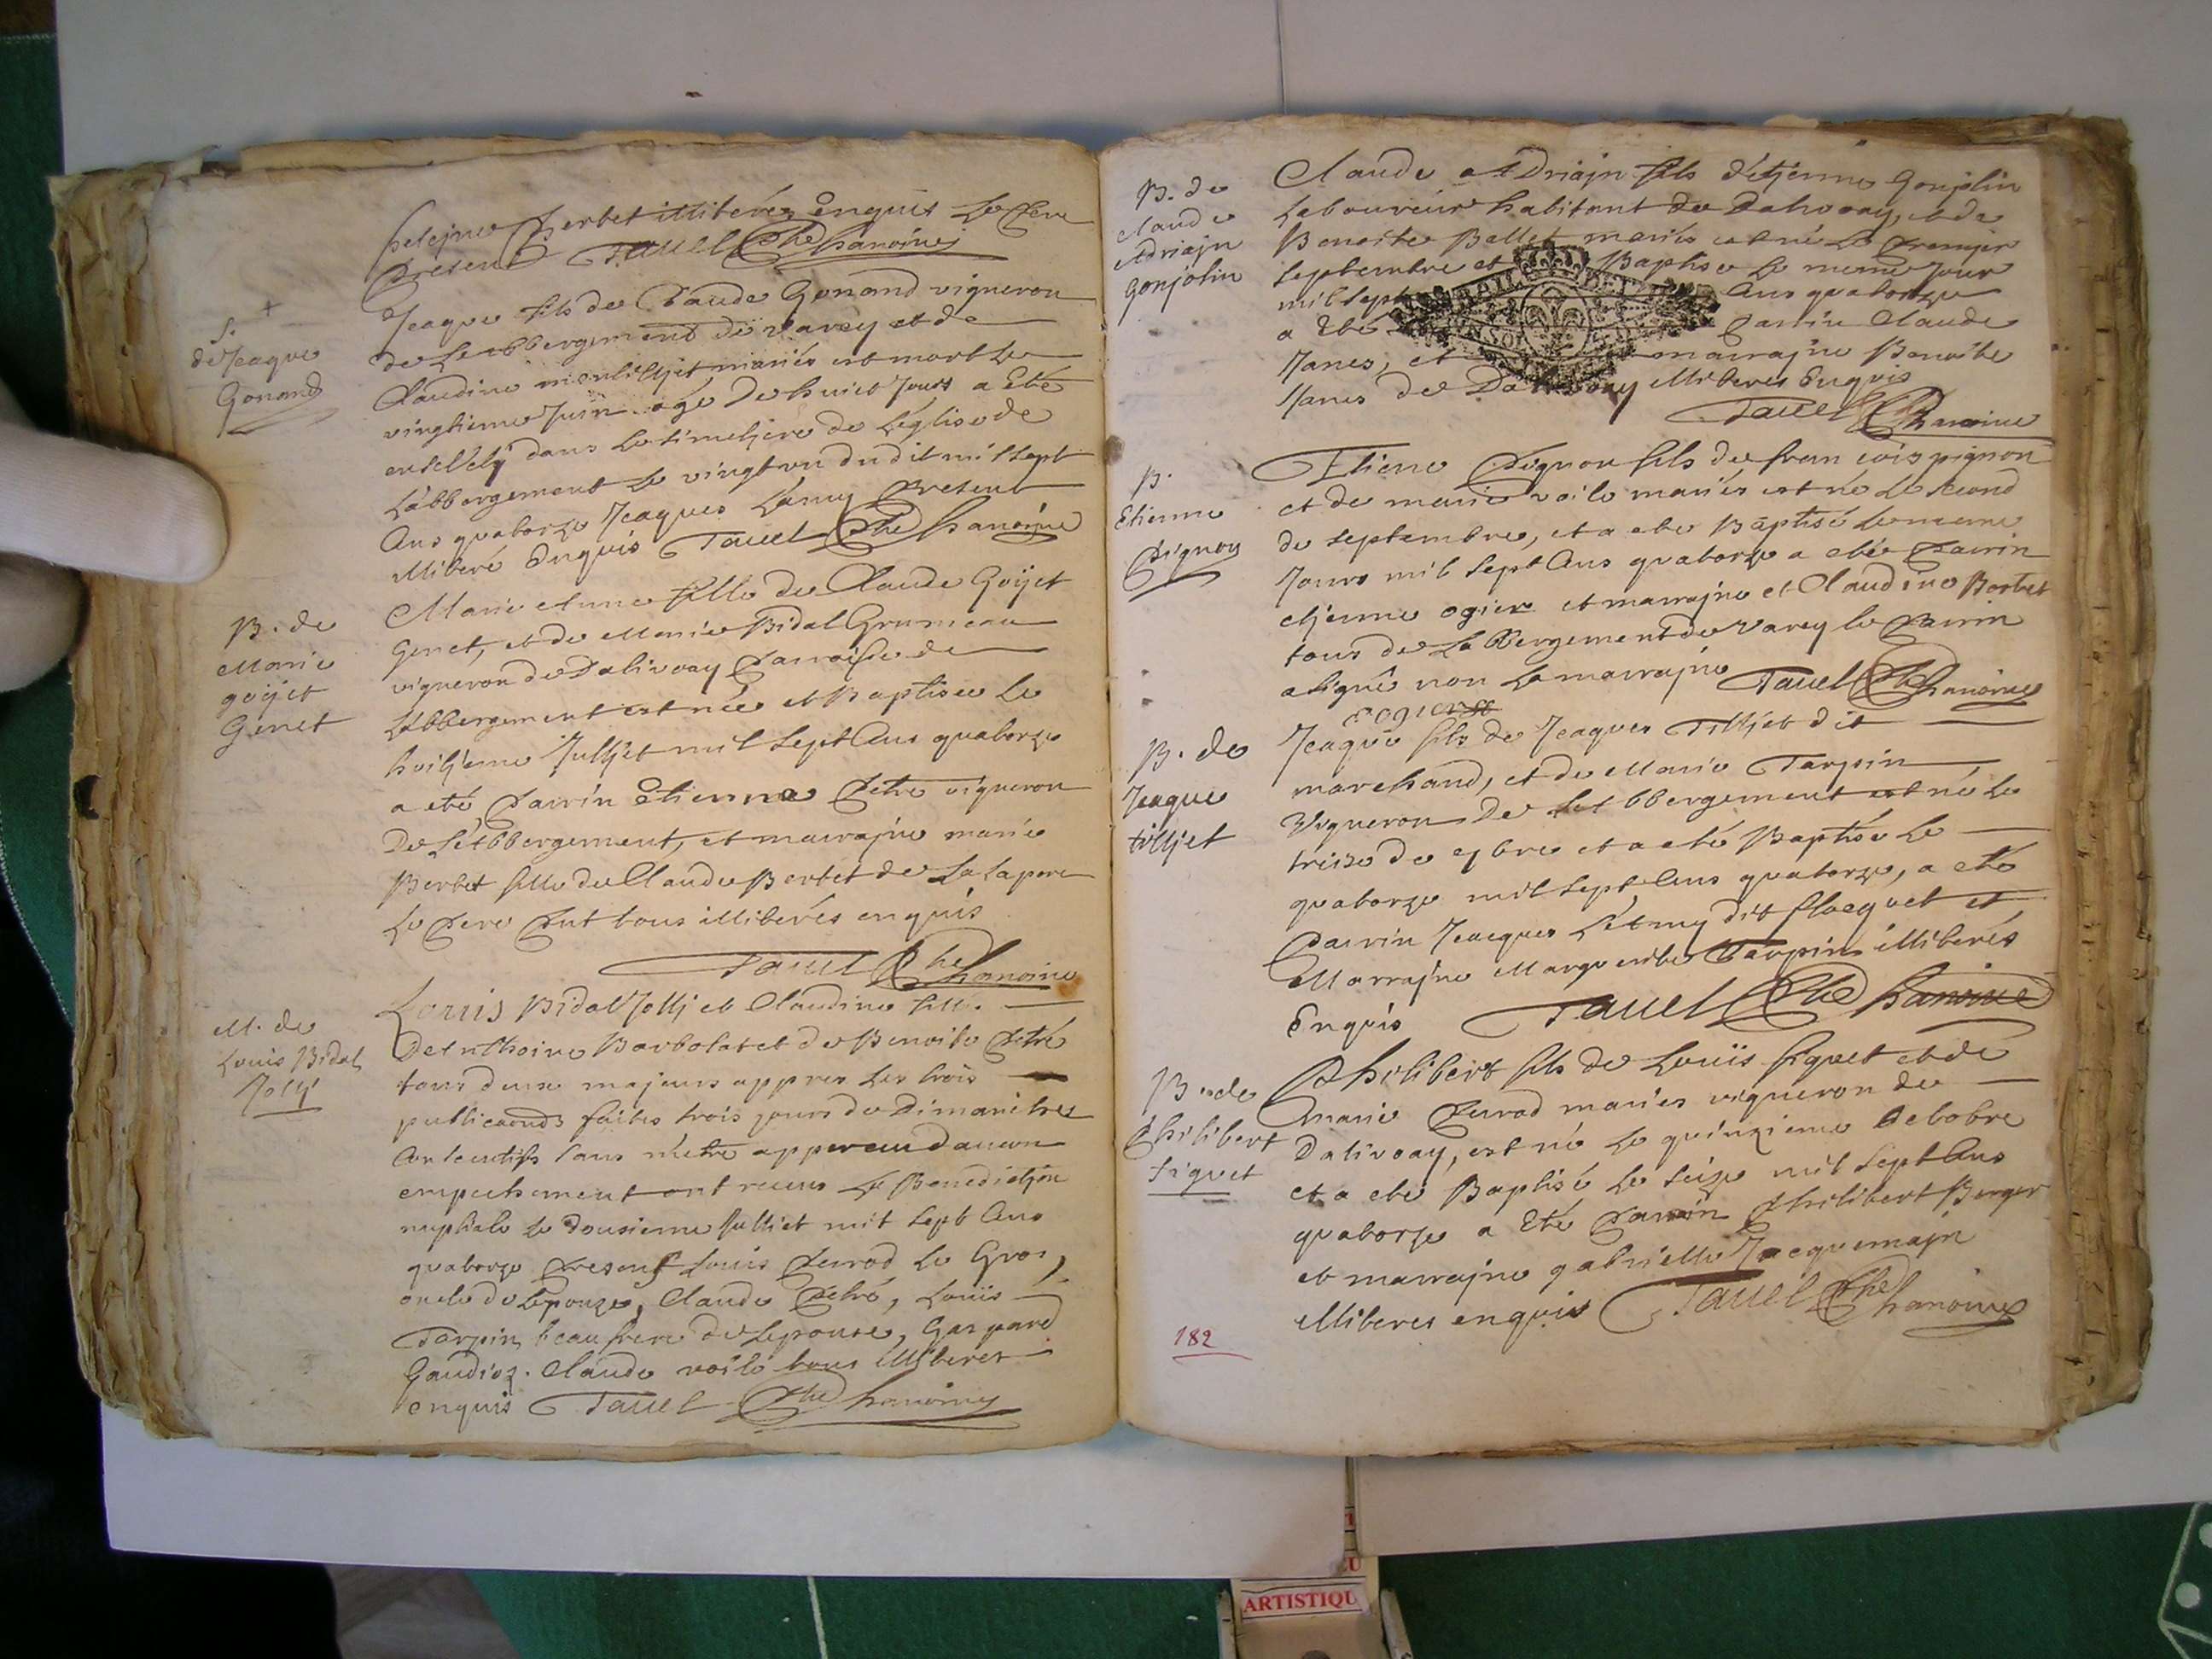 Berbet illiterés Enquis Le Pere
Present Tavel Pbre Chanoine
S. +
de Jeaque
Gonand
Jeaque fils de Claude Gonand vigneron
de L'Abbergement de varey et de
Claudine mariés est mort Le
vingtieme Juin agé De huict Jours a Eté
ensevely dans Le simetjere de L'église de
L'abbergement Le vingt un du dit mil sept
Ans quatorze Jeaques Lamy Present
illiteré Enquis Tavel Pbre Chanoine
B. de
Marie
goÿet
Genet
Marie Anne fille de Claude Goÿet
Genet, et de Marie Bidal Gruneau
vigneron de Dalivoay Parroisse de
L'abbergement est née et Baptisée Le
huitjeme Julljet mil sept Ans quatorze
a eté Parrin Etienne Petre vigneron
De L'Abbergement, et marrajne marie
Berbet fille de Claude Berbet de La
Le Pere Ent tous illiterés enquis
Tavel Pbre Chanoine
M. de
Louis Bidal
Jollj
Louis Bidal Jollj et Claudine fille
D'Anthoine Barbolat et de Benoite Petré
tous deux majeurs appres Les trois
publicaonds faites trois jours de Dimanches
Consecutifs sans n'étre apperceu d'aucun
empechement ont receus La Benedictjon
nuptiale Le dousieme Julliet mil sept Ans
quatorze Presens Louis Perrod Le Gros,
oncle de L'epouze, Claude Petré, Louïs
Tarpin beau frere de Lepouse, Gaspard
Gaudioz. Claude voile tous illiteres
enquis Tavel Pbre Chanoine
B. de
claude
Adriajn
Gonjolin
Claude Adriajn fils d'étjenne Gonjolin
Laboureur habitant de Dalivoay, et de
Benoite Ballet mariés est né Le Premjer
septembre et Baptisé Le meme Jour
mil sept Ans quatorze
a Eté Parrin Claude
Janes, et marrajne Benoite
Janes de Dalivoay illiteres Enquis
Tavel Pbre Chanoine
B.
Etienne
Pignon
Etiene Pignon fils de francois pignon
et de marie voile mariés est né Le second
de septembre, et a eté Baptisé Le meme
Jours mil sept Ans quatorze a eté Parrin
etjenne ogier et marrajne et Claudine Borbet
tous de L'abbergement de Varey le Parrin
a signé non La marrajne Tavel Pbre Chanoine
E ogier
B. de
Jeaque
tilljet
Jeaque fils de Jeaques Tilljet dit
marchand, et de Marie Tarpin
Vigneron De L'Abbergement est né Le
treise de 7bre et a eté Baptisée Le
quatorze mil sept Ans quatorze, a eté
Parrin Jeacques L'Amy dit flacquet et
Marrajne Marguerite Tarpin illiterés
Enquis Tavel Pbre Chanoine
B. de
Philibert
figuet
Philibert fils de Louïs figuet et de
marie Perrod mariés vigneron de
Dalivoay, est né Le quinzieme Octobre
et a eté Baptisé Le seize mil sept Ans
quatorze a Eté Parrin Philibert Berger
et marrajne gabrielle Jacquemajn
illiteres enquis Tavel Pbre Chanoine
182
ARTISTIQU